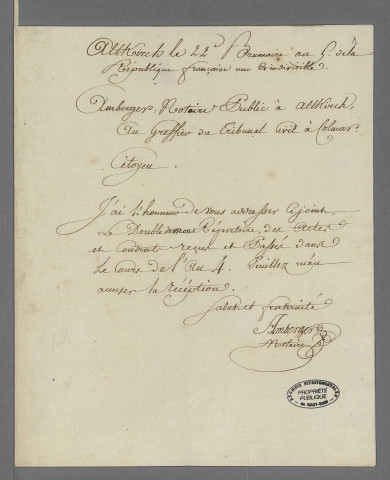 Altkirch le 22e Brumaire au 5. de la
République françoise une & indivisible.
Amberger, Notaire Public à Altkirch,
Au Greffier du Tribunal Civil à Colmar.
Citoyen.
J'ai l'honneur de vous adresser Cÿjoint
Le Double de mon Répertoire, des Actes
et Contrats reçus et Passés dans
Le Cours de l'An 4. Veuillez m'en
accuser la réception.
Salut et fraternité
Amberger
Notaire
ARCHIVES DÉPARTEMENTALES
PROPRIÉTÉ
PUBLIQUE
du HAUT-RHIN